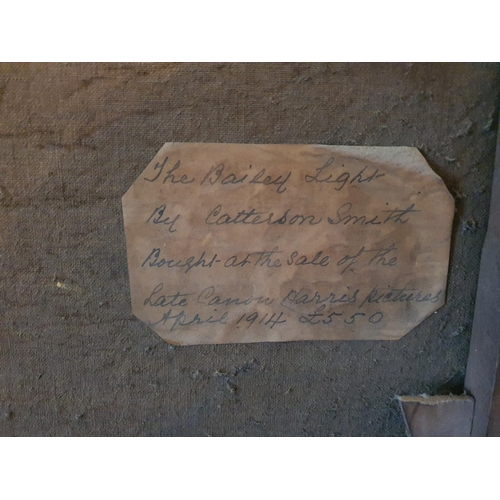 The Bailey Light
By Catterson Smith
Bought at the sale of the
Late Canon Harris pictures
April 1914 £5 5 0